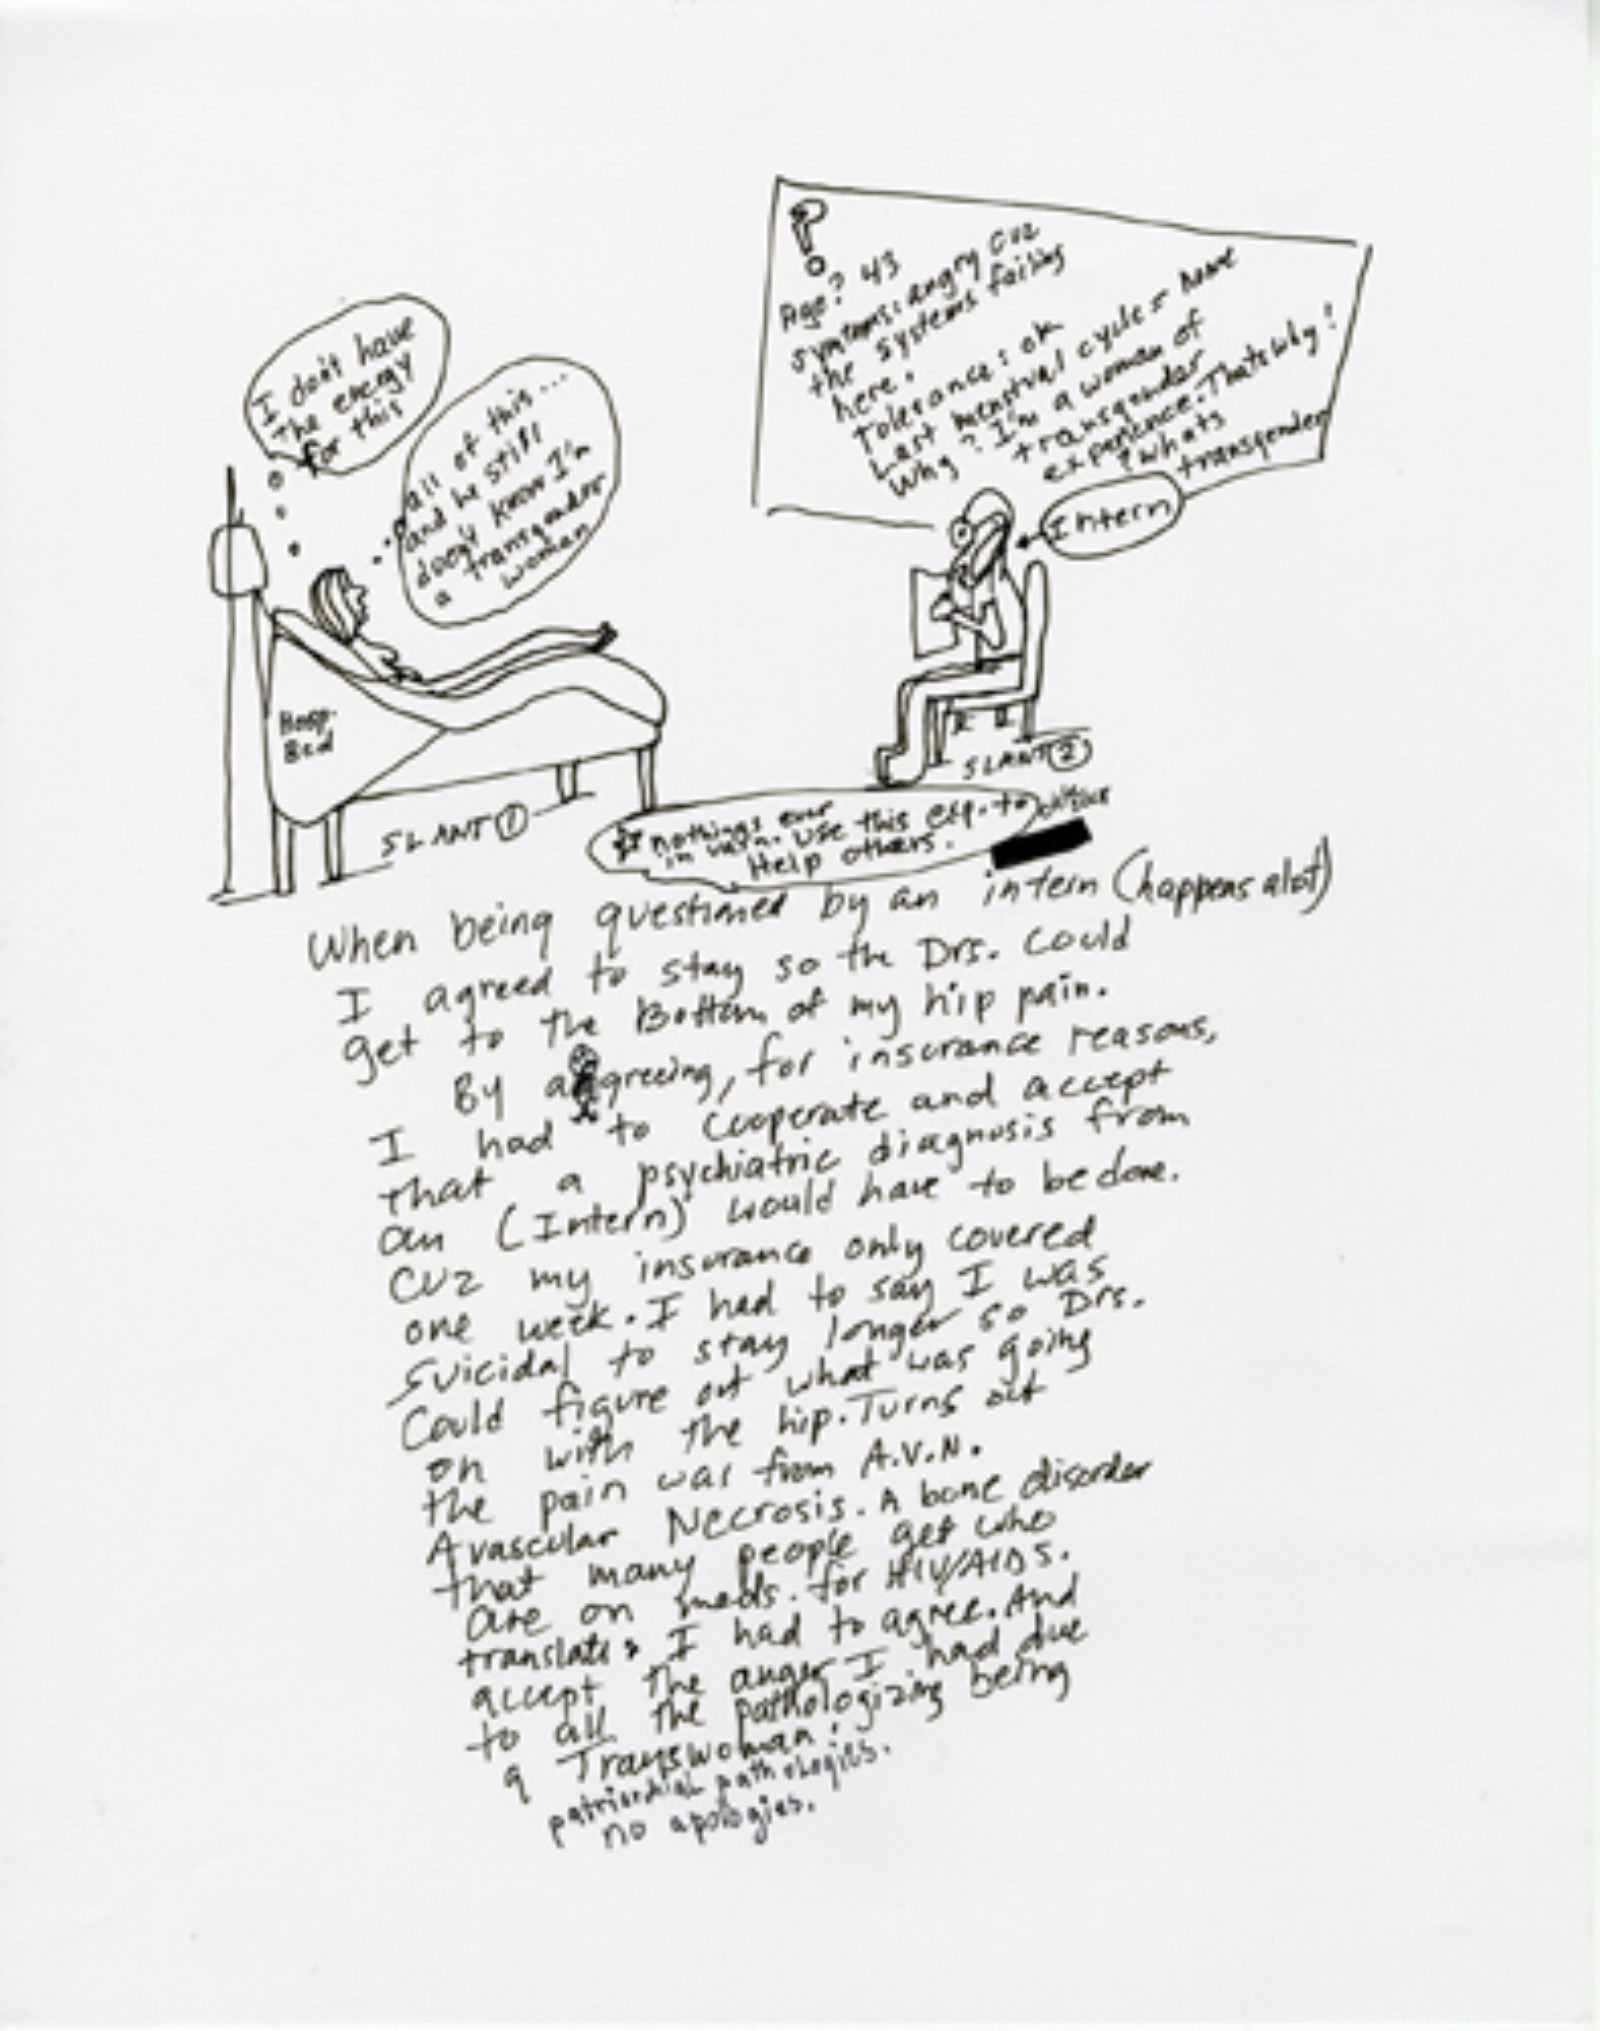 I don't have
the energy
for this
all of this...
and he still
doesn't know I'm
a transgender
woman
?
Age? 43
symptoms: angry cuz
the systems failing
here.
Tolerance: ok
Last menstrual cycle = none
why? I'm a woman of
transgender
experience. Thats why!
? whats
transgender
Intern
Hosp.
Bed
SLANT ①
SLANT ②
☆ nothings ever
in vain. Use this exp. to
Help others.
When being questioned by an intern (happens alot)
I agreed to stay so the Drs. Could
get to the Bottom of my hip pain.
By agreeing, for insurance reasons,
I had to cooperate and accept
that a psychiatric diagnosis from
an (Intern) would have to be done.
CUZ my insurance only covered
one week. I had to say I was
suicidal to stay longer so Drs.
Could figure out what was going
on with the hip. Turns out
the pain was from A.V.N.
Avascular Necrosis. A bone disorder
that many people get who
are on meds. for HIV/AIDS.
translate: I had to agree. And
accept the anger I had due
to all the pathologizing being
a Transwoman:
patriarchial pathologies.
no apologies.